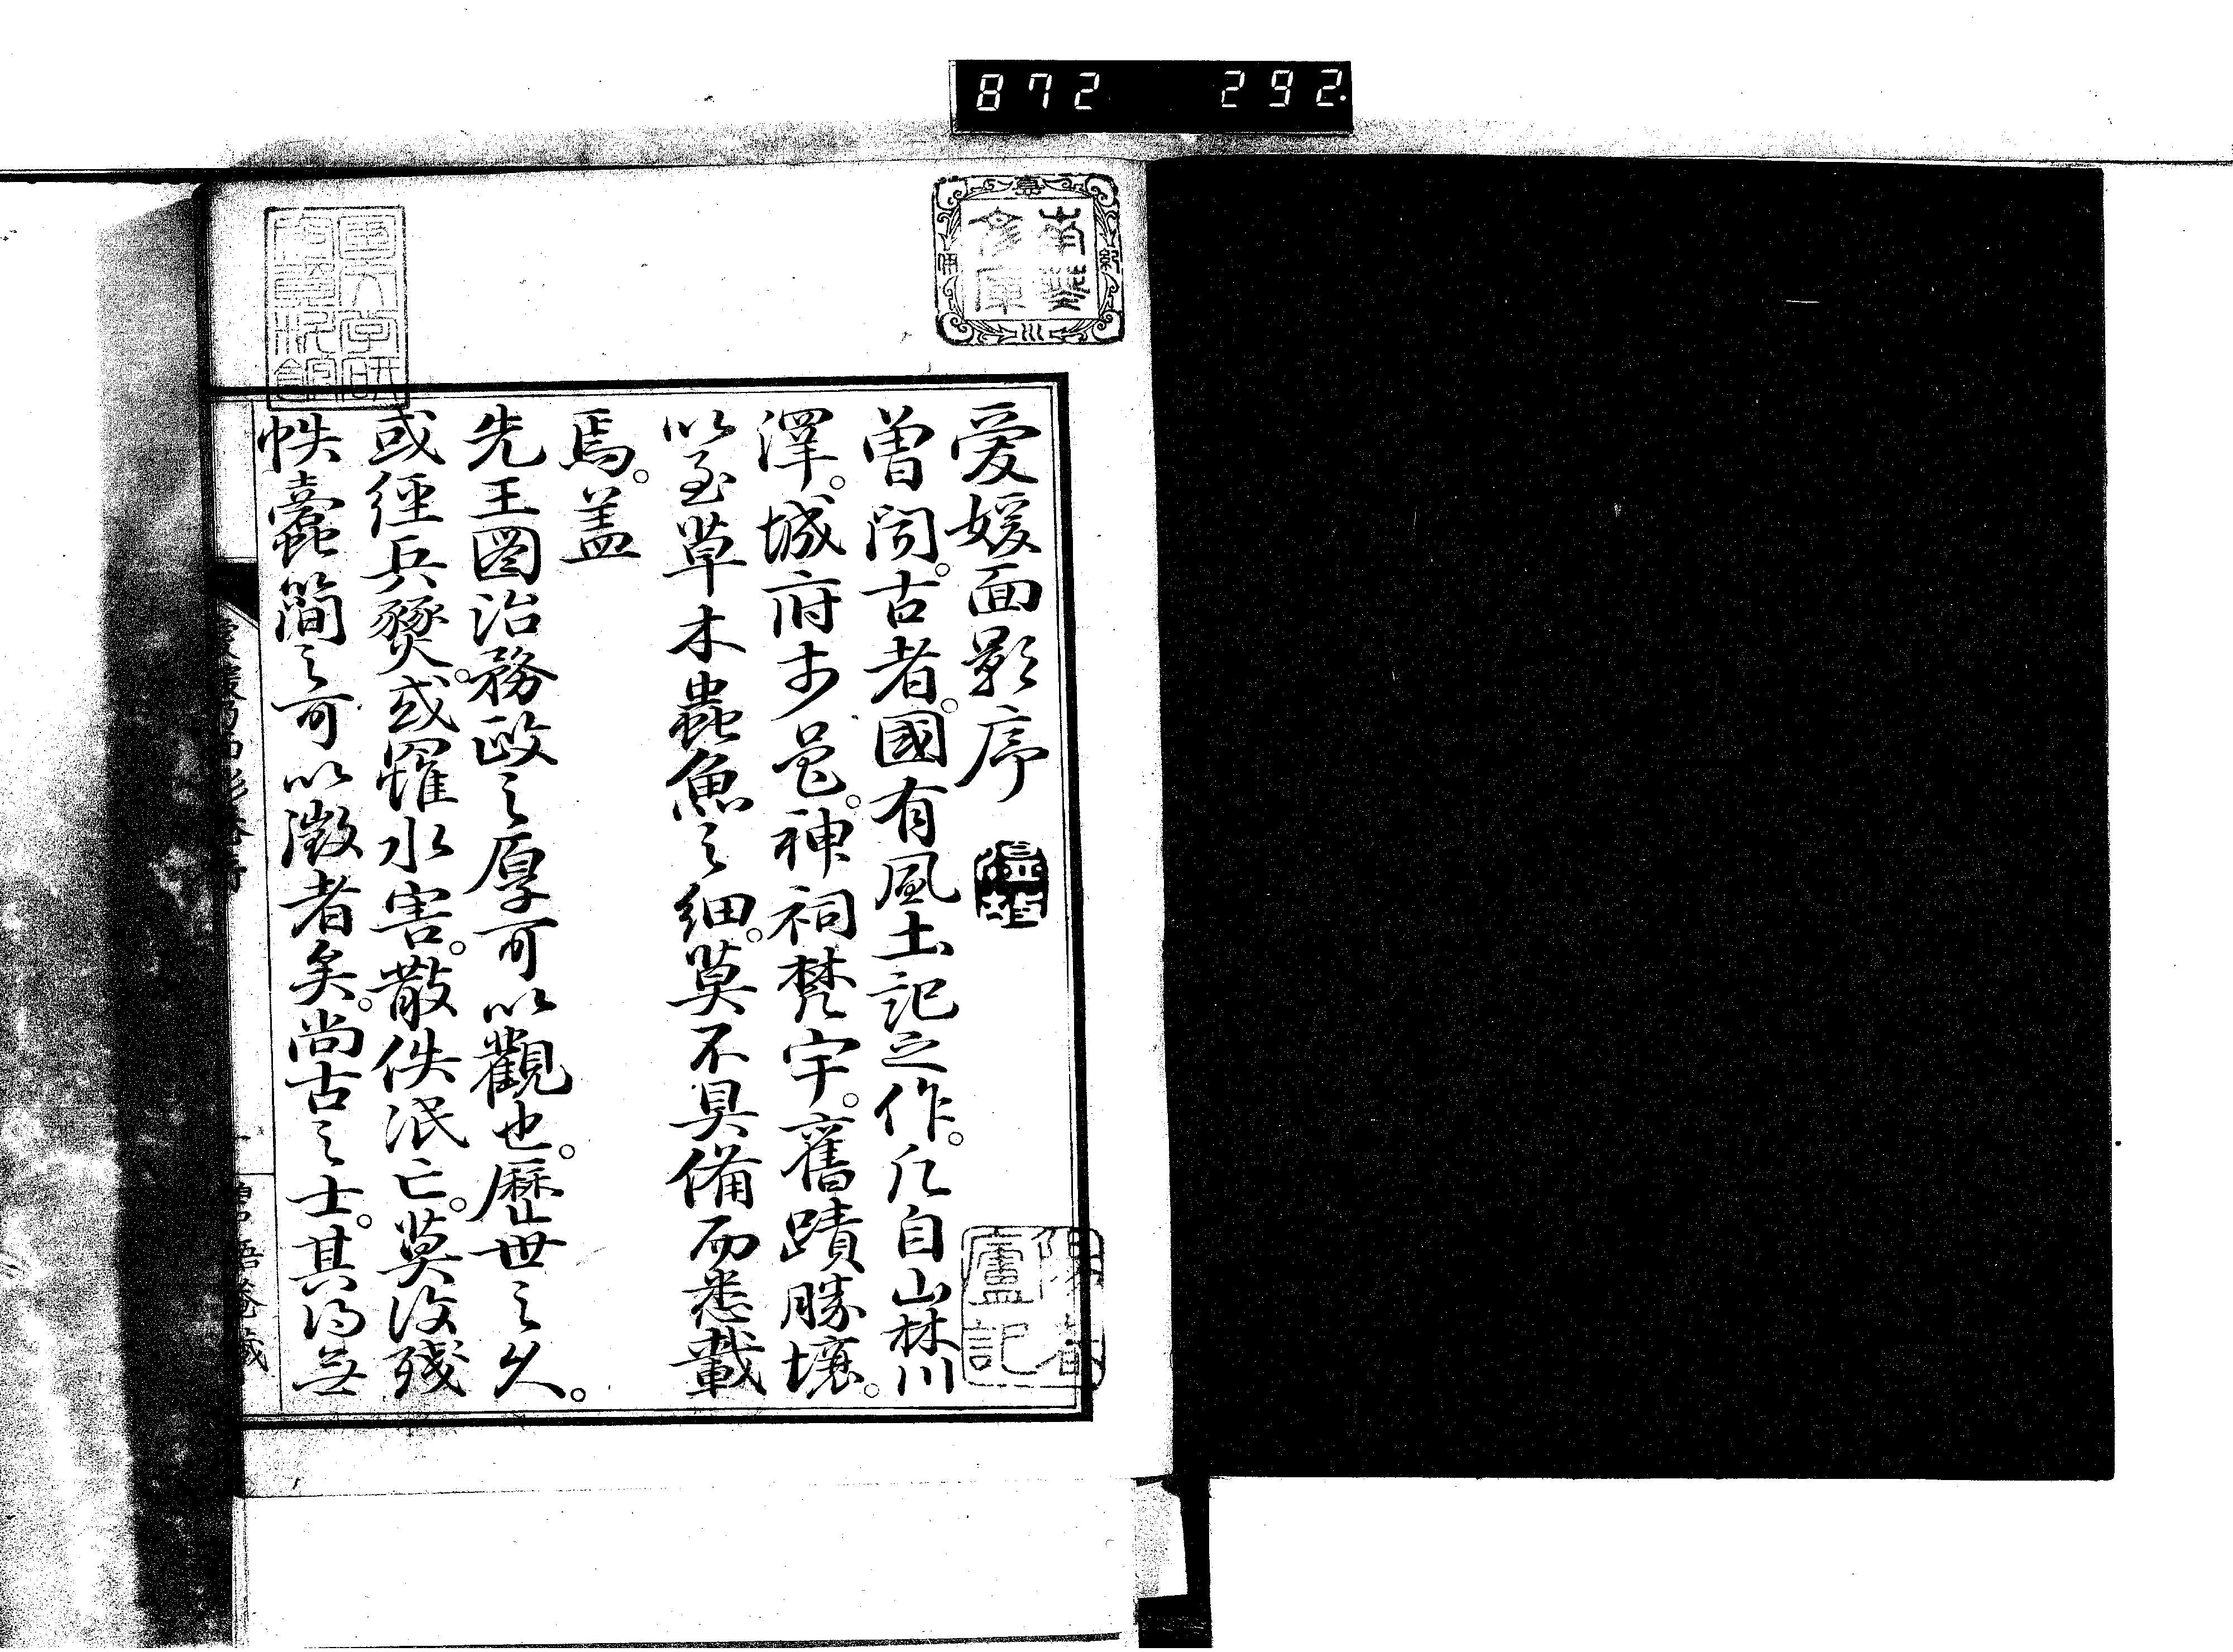 872 292.
愛媛面影序
曽聞。古者。國有風土記之作。凡自山林川
澤。城府市邑。神祠梵宇。舊蹟勝壤。
以至草木蟲魚之細。莫不具備而悉載
焉。蓋
先王圖治務政之厚可以觀也。歷世之久。
或經兵燹。或罹水害。散佚泯亡。莫復殘
帙蠹簡之可以徵者矣。尚古之士。其得無
南葵文庫
陽春廬記